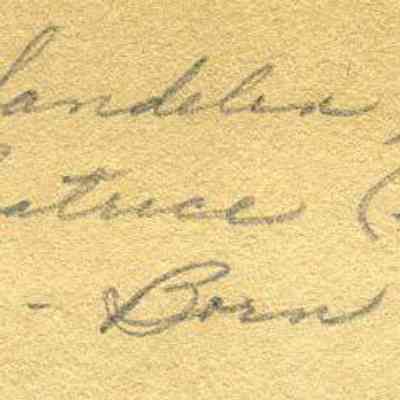 Sandelin,
atrice (
- Born